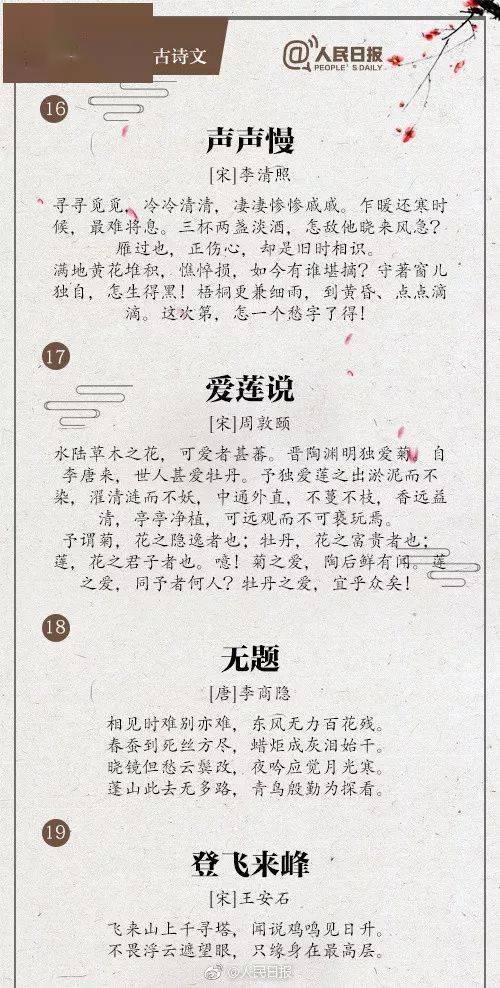 古诗文
@人民日报
PEOPLE'S DAILY
16
声声慢
[宋]李清照
寻寻觅觅，冷冷清清，凄凄惨惨戚戚。乍暖还寒时
候，最难将息。三杯两盏淡酒，怎敌他晓来风急？
雁过也，正伤心，却是旧时相识。
满地黄花堆积，憔悴损，如今有谁堪摘？守著窗儿
独自，怎生得黑！梧桐更兼细雨，到黄昏、点点滴
滴。这次第，怎一个愁字了得！
17
爱莲说
[宋]周敦颐
水陆草木之花，可爱者甚蕃。晋陶渊明独爱菊。自
李唐来，世人甚爱牡丹。予独爱莲之出淤泥而不
染，濯清涟而不妖，中通外直，不蔓不枝，香远益
清，亭亭净植，可远观而不可亵玩焉。
予谓菊，花之隐逸者也；牡丹，花之富贵者也；
莲，花之君子者也。噫！菊之爱，陶后鲜有闻。莲
之爱，同予者何人？牡丹之爱，宜乎众矣！
18
无题
[唐]李商隐
相见时难别亦难，东风无力百花残。
春蚕到死丝方尽，蜡炬成灰泪始干。
晓镜但愁云鬓改，夜吟应觉月光寒。
蓬山此去无多路，青鸟殷勤为探看。
19
登飞来峰
[宋]王安石
飞来山上千寻塔，闻说鸡鸣见日升。
不畏浮云遮望眼，只缘身在最高层。
@人民日报